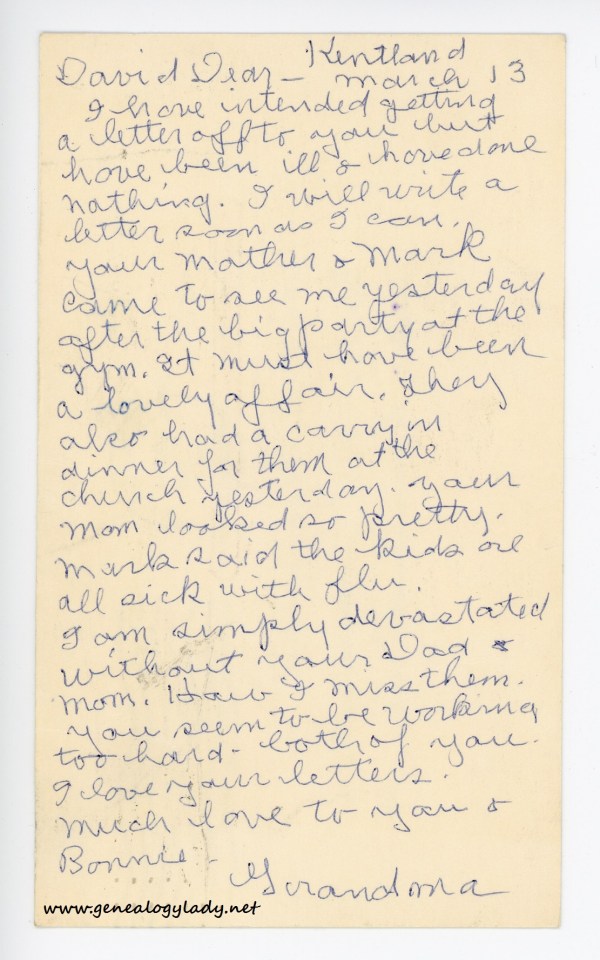 Kentland
David Dear - March 13
I have intended getting
a letter off to you but
have been ill & have done
nothing. I will write a
letter soon as I can.
your Mother & Mark
came to see me yesterday
after the big party at the
gym. It must have been
a lovely affair. They
also had a carry in
dinner for them at the
church yesterday. your
Mom looked so pretty.
Mark said the kids are
all sick with flu.
I am simply devastated
without your Dad &
Mom. How I miss them.
you seem to be working
too hard - both of you.
I love your letters.
Much love to you &
Bonnie -
Grandma
www.genealogylady.net